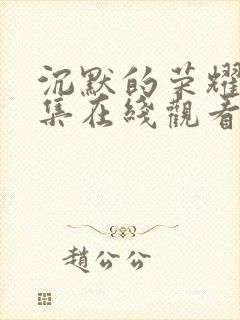 沉默的荣耀
集在綫觀看
趙公公